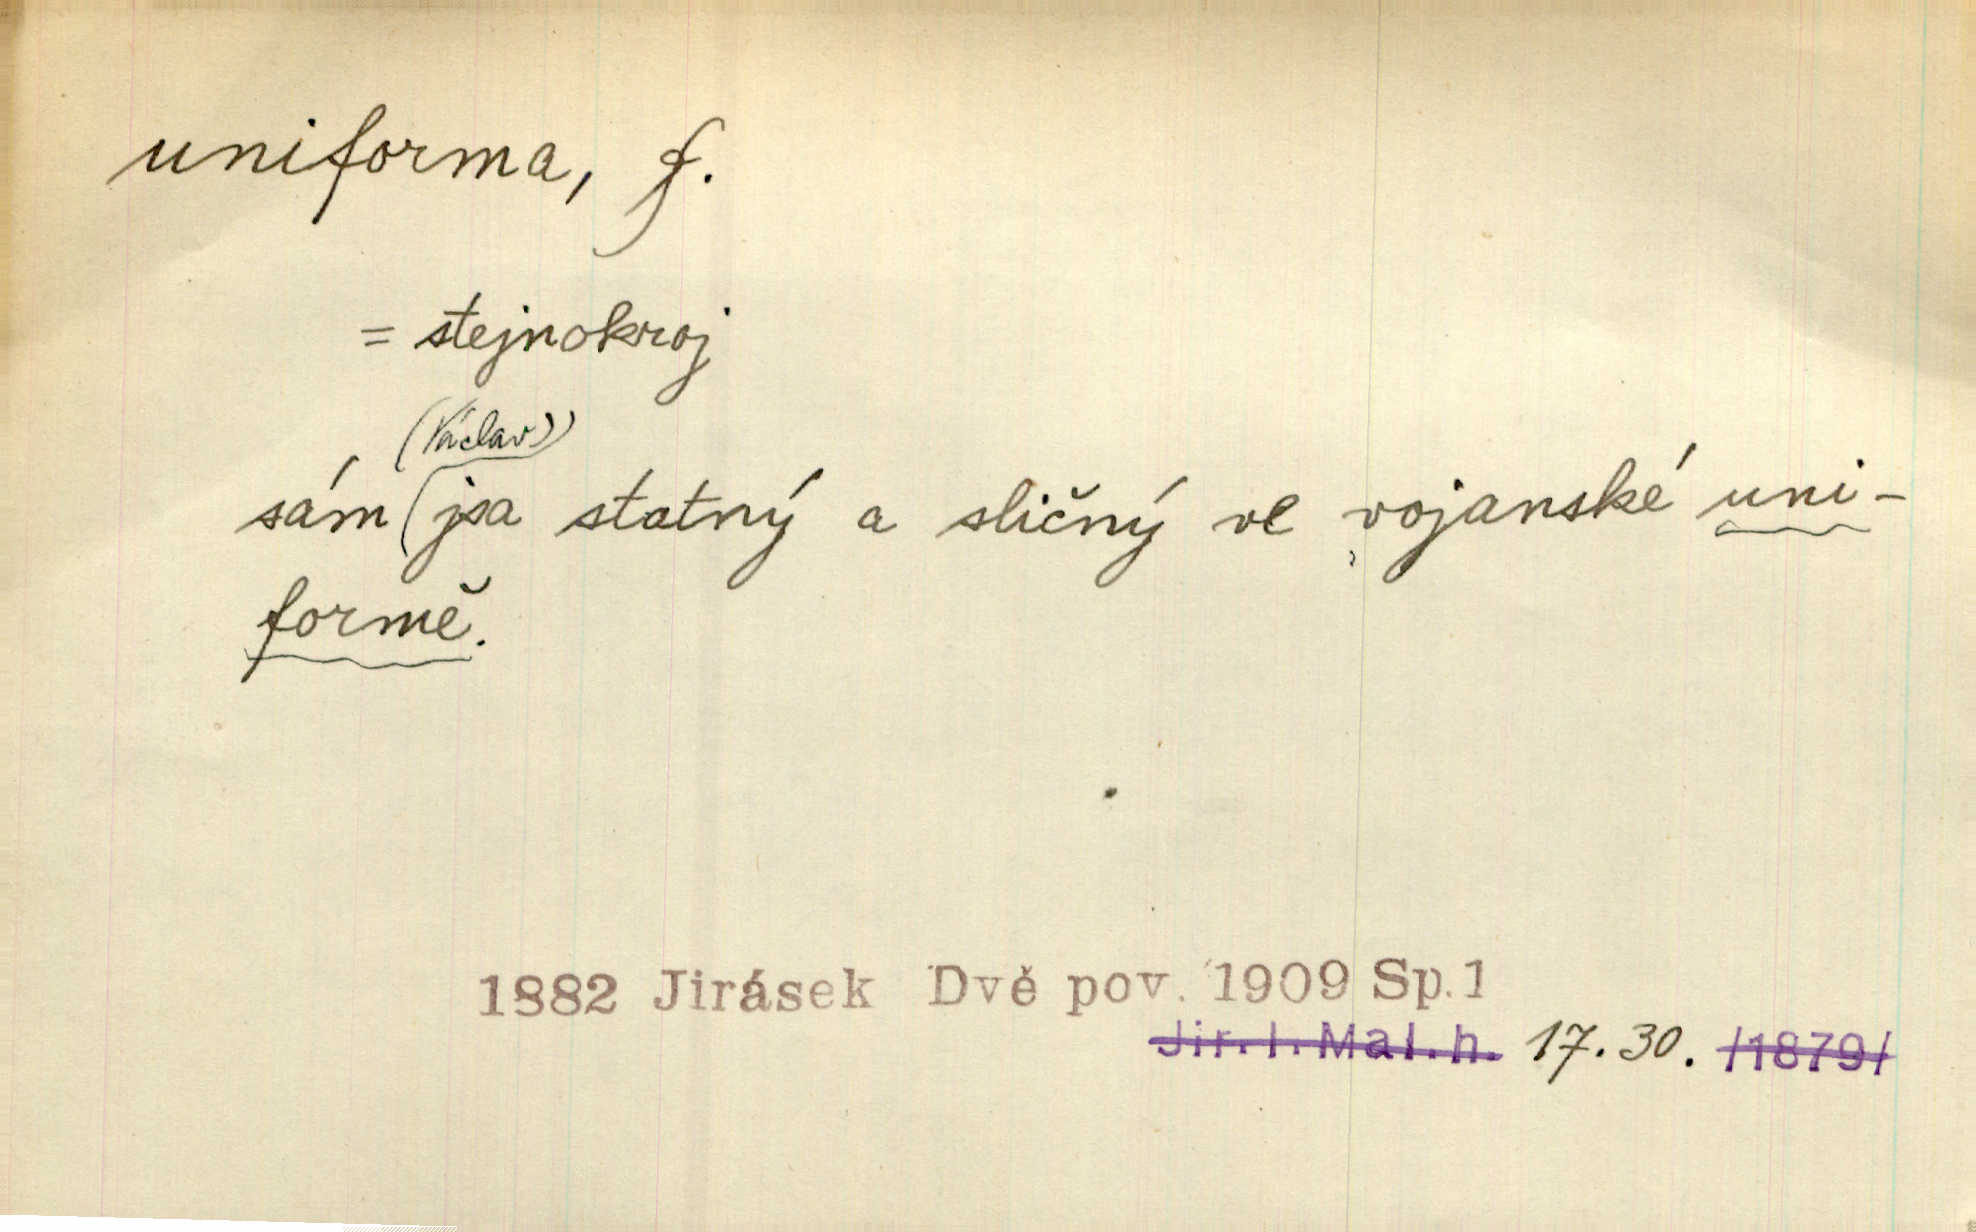 uniforma, f.
= stejnokroj
(Václav)
sám jsa statný a sličný ve vojanské uni-
formě.
1882 Jirásek Dvě pov. 1909 Sp.1
Jir. I. Mal. h. 17. 30. /1879/